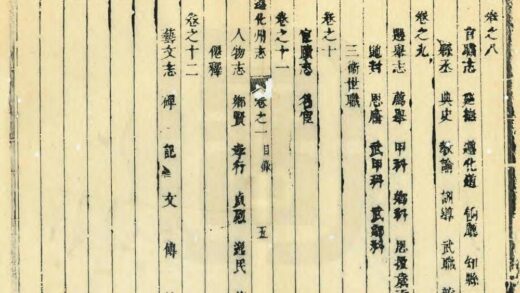 卷之八
官職志 遵化道 知縣
縣丞 典史 教諭 訓導 武職
卷之九
選舉志 薦舉 甲科 鄉科 恩拔歲
馳封 恩廕 武甲科 武鄉科
三衛世職
卷之十
宦蹟志 名宦
卷之十一
遵化州志 卷之一 目錄 五
人物志 鄉賢 孝行 貞烈 逸民
僊釋
卷之十二
藝文志 碑 記 文 傳